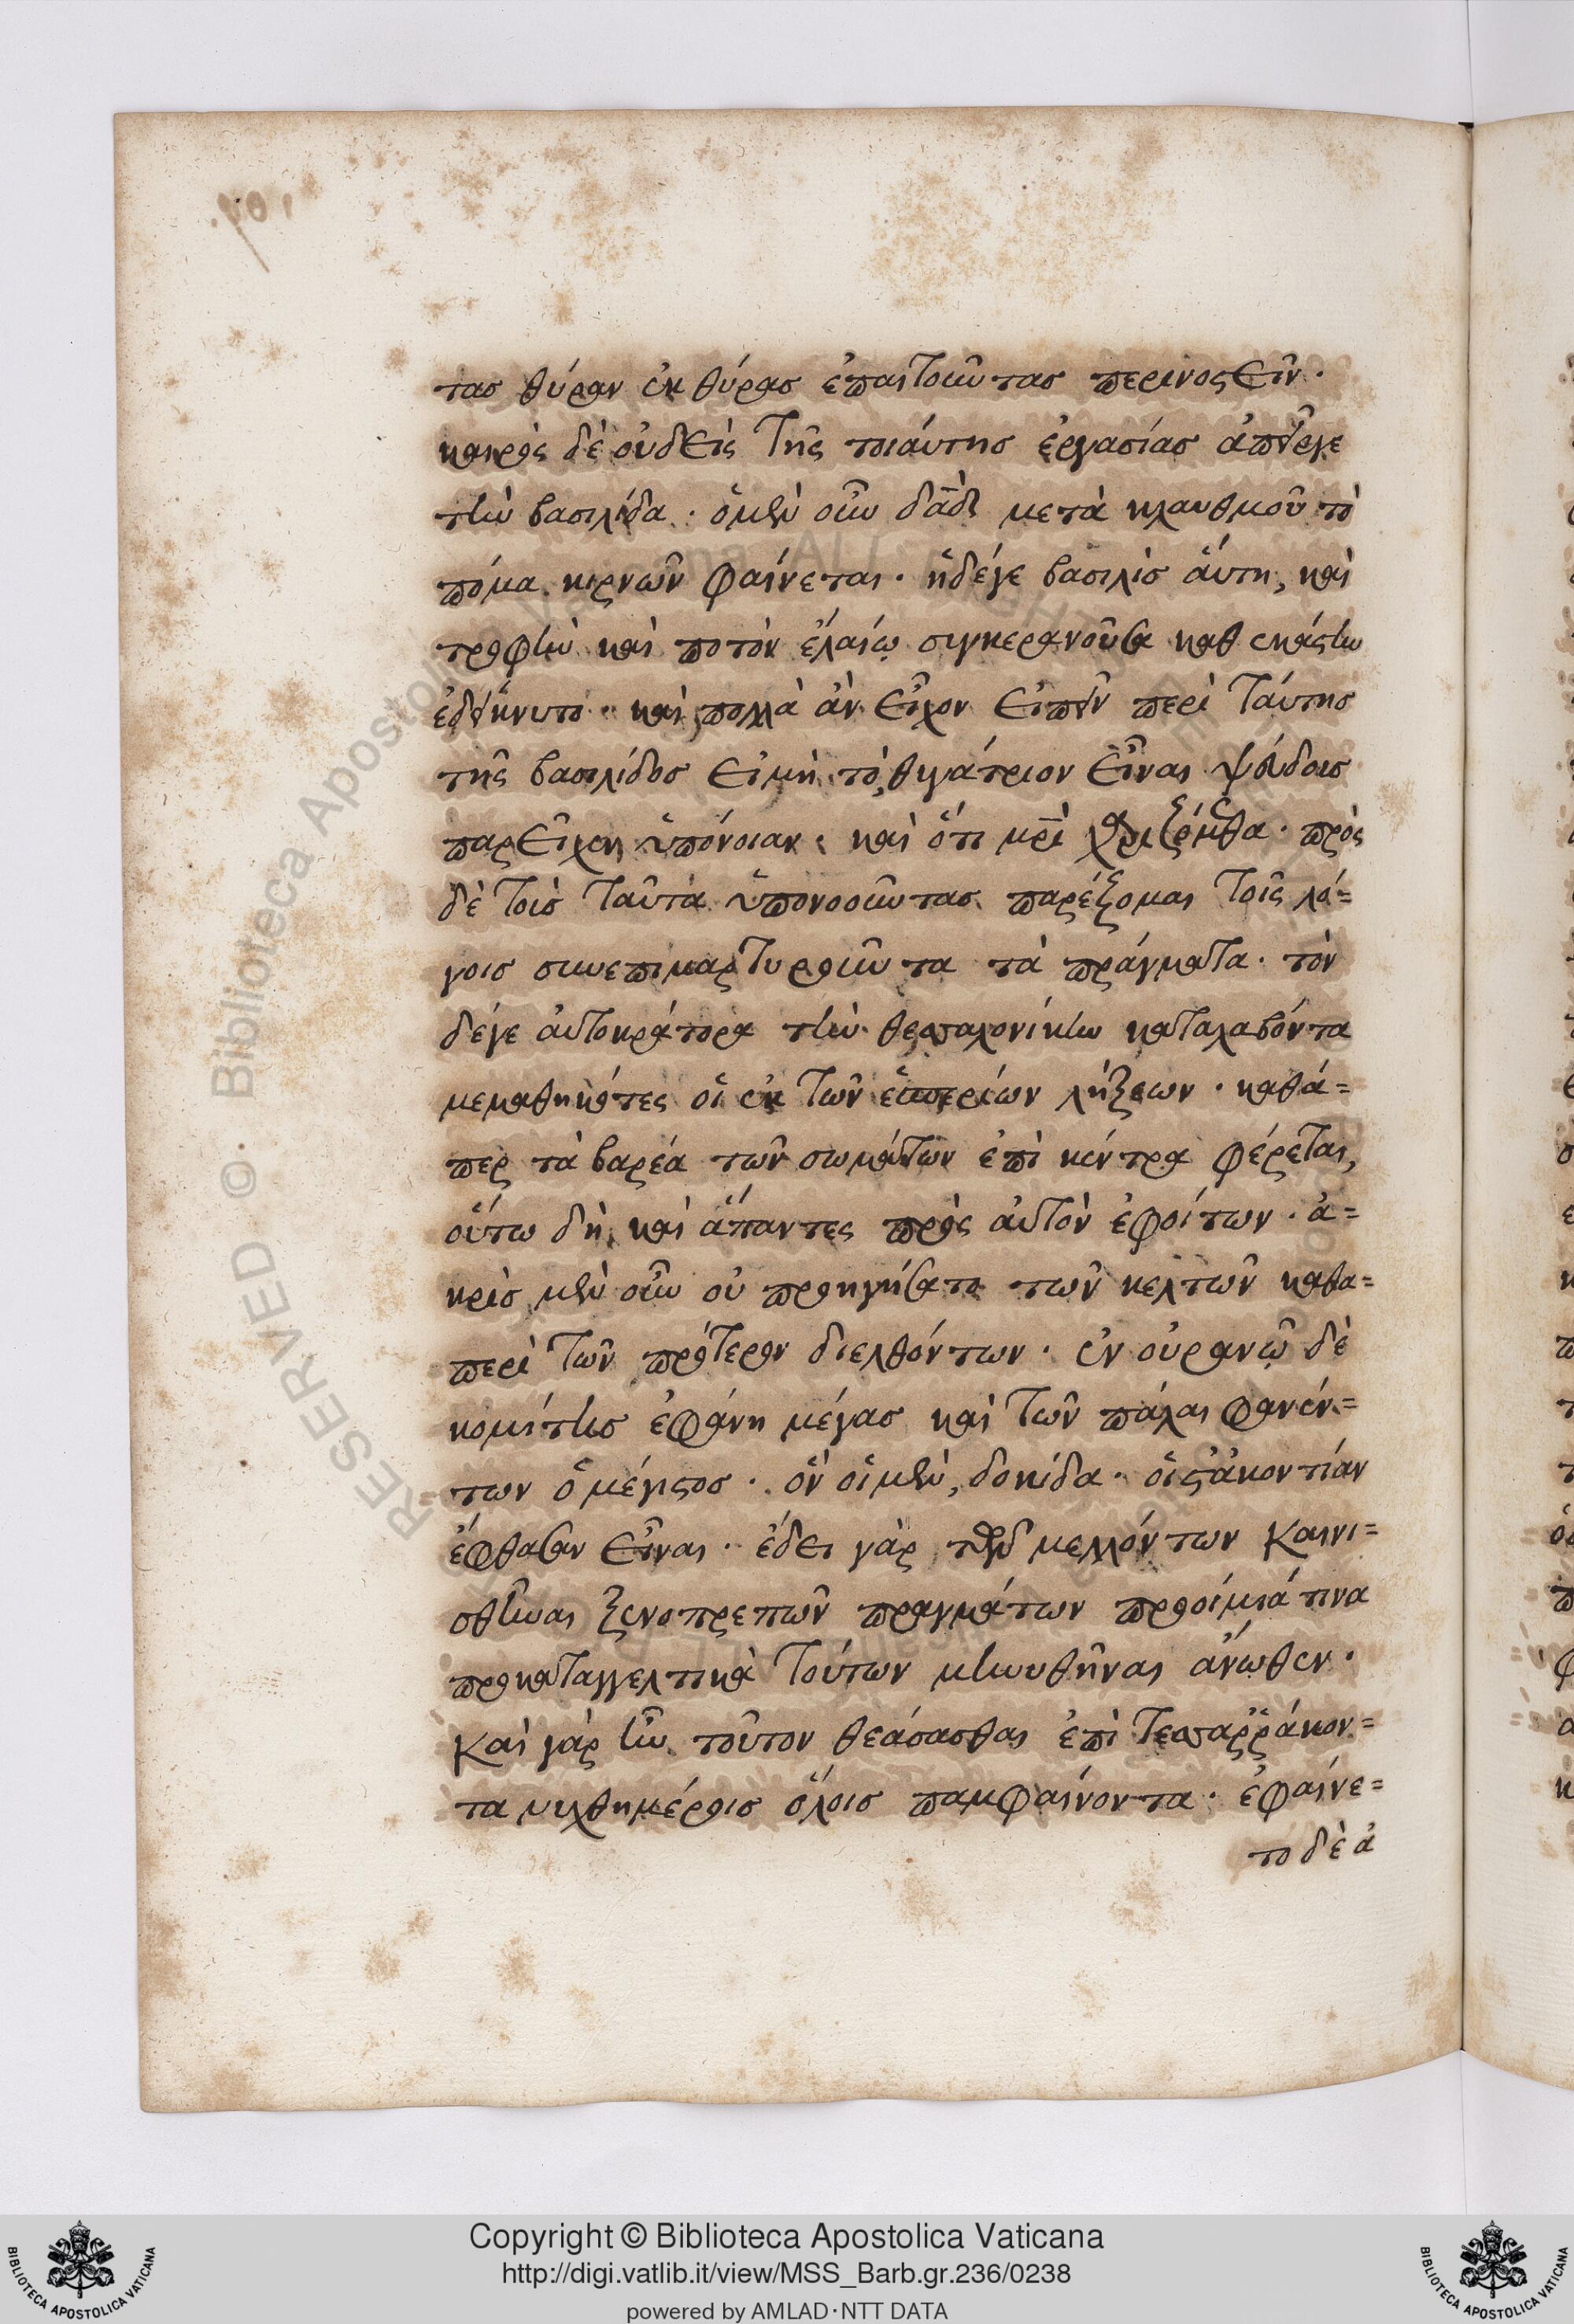 τας θύραν ἐκ θύρας ἐπαιτοῦντας περινοστεῖν.
καιρὸς δὲ οὐδεὶς τῆς τοιάυτης ἐργασίας ἀπεῖργε
τὴν βασιλίδα. ὁ μὲν οὖν δᾶδ μετὰ κλαυθμοῦ τὸ
πόμα κιρνῶν φαίνεται. ἡ δέγε βασιλὶς ἅυτη, καὶ
τροφὴν καὶ ποτὸν ἐλαίῳ συγκερανοῦσα καθ ἑκάστην
ἐδείκνυτο. καὶ πολλὰ ἂν εἶχον εἰπεῖν περὶ τάυτης
τῆς βασιλίδος εἰ μὴ τὸ θυγάτριον εἶναι ψεύδους
παρεῖχεν ὑπόνοιαν. καὶ ὅτι μρὶ χαριζόμεθα. πρὸς
δὲ τοὺς ταῦτα ὑπονοοῦντας παρέξομαι τοῖς λό=
γοις συνεπιμαρτυροῦντα τὰ πράγματα. τὸν
δέγε ἀυτοκράτορα τὴν θεσσαλονίκην καταλαβόντα
μεμαθηκότες οἱ ἐκ τῶν ἑσπερίων λήξεων. καθά=
περ τὰ βαρέα τῶν σωμάτων ἐπὶ κέντρα φέρεται,
οὕτω δὴ καὶ ἅπαντες πρὸς ἀυτὸν ἐφοίτων. ἀ=
κρὶς μὲν οὖν οὐ προηγήσατο τῶν κελτῶν καθα=
περὶ τῶν πρότερον διελθόντων. ἐν οὐρανῷ δὲ
κομήτης ἐφάνη μέγας καὶ τῶν πάλαι φανέν=
των ὁ μέγιστος. ὃν οἱ μὲν, δοκίδα. οἱ δ ἀκοντίαν
ἔφθασαν εἶναι. ἔδει γὰρ τῶν μελλόντων καινι=
σθῆναι ξενοπρεπῶν πραγμάτων προοίμιά τινα
προκαταγγελτικὰ τούτων μηνυθῆναι ἄνωθεν.
καὶ γὰρ ἦν τοῦτον θεάσασθαι ἐπὶ τεσσαῤῥάκον=
τα νυχθημέροις ὅλοις παμφαίνοντα. ἐφαίνε=
το δὲ ἀ
Copyright © Biblioteca Apostolica Vaticana
http://digi.vatlib.it/view/MSS_Barb.gr.236/0238
powered by AMLAD·NTT DATA
BIBLIOTECA APOSTOLICA VATICANA
BIBLIOTECA APOSTOLICA VATICANA